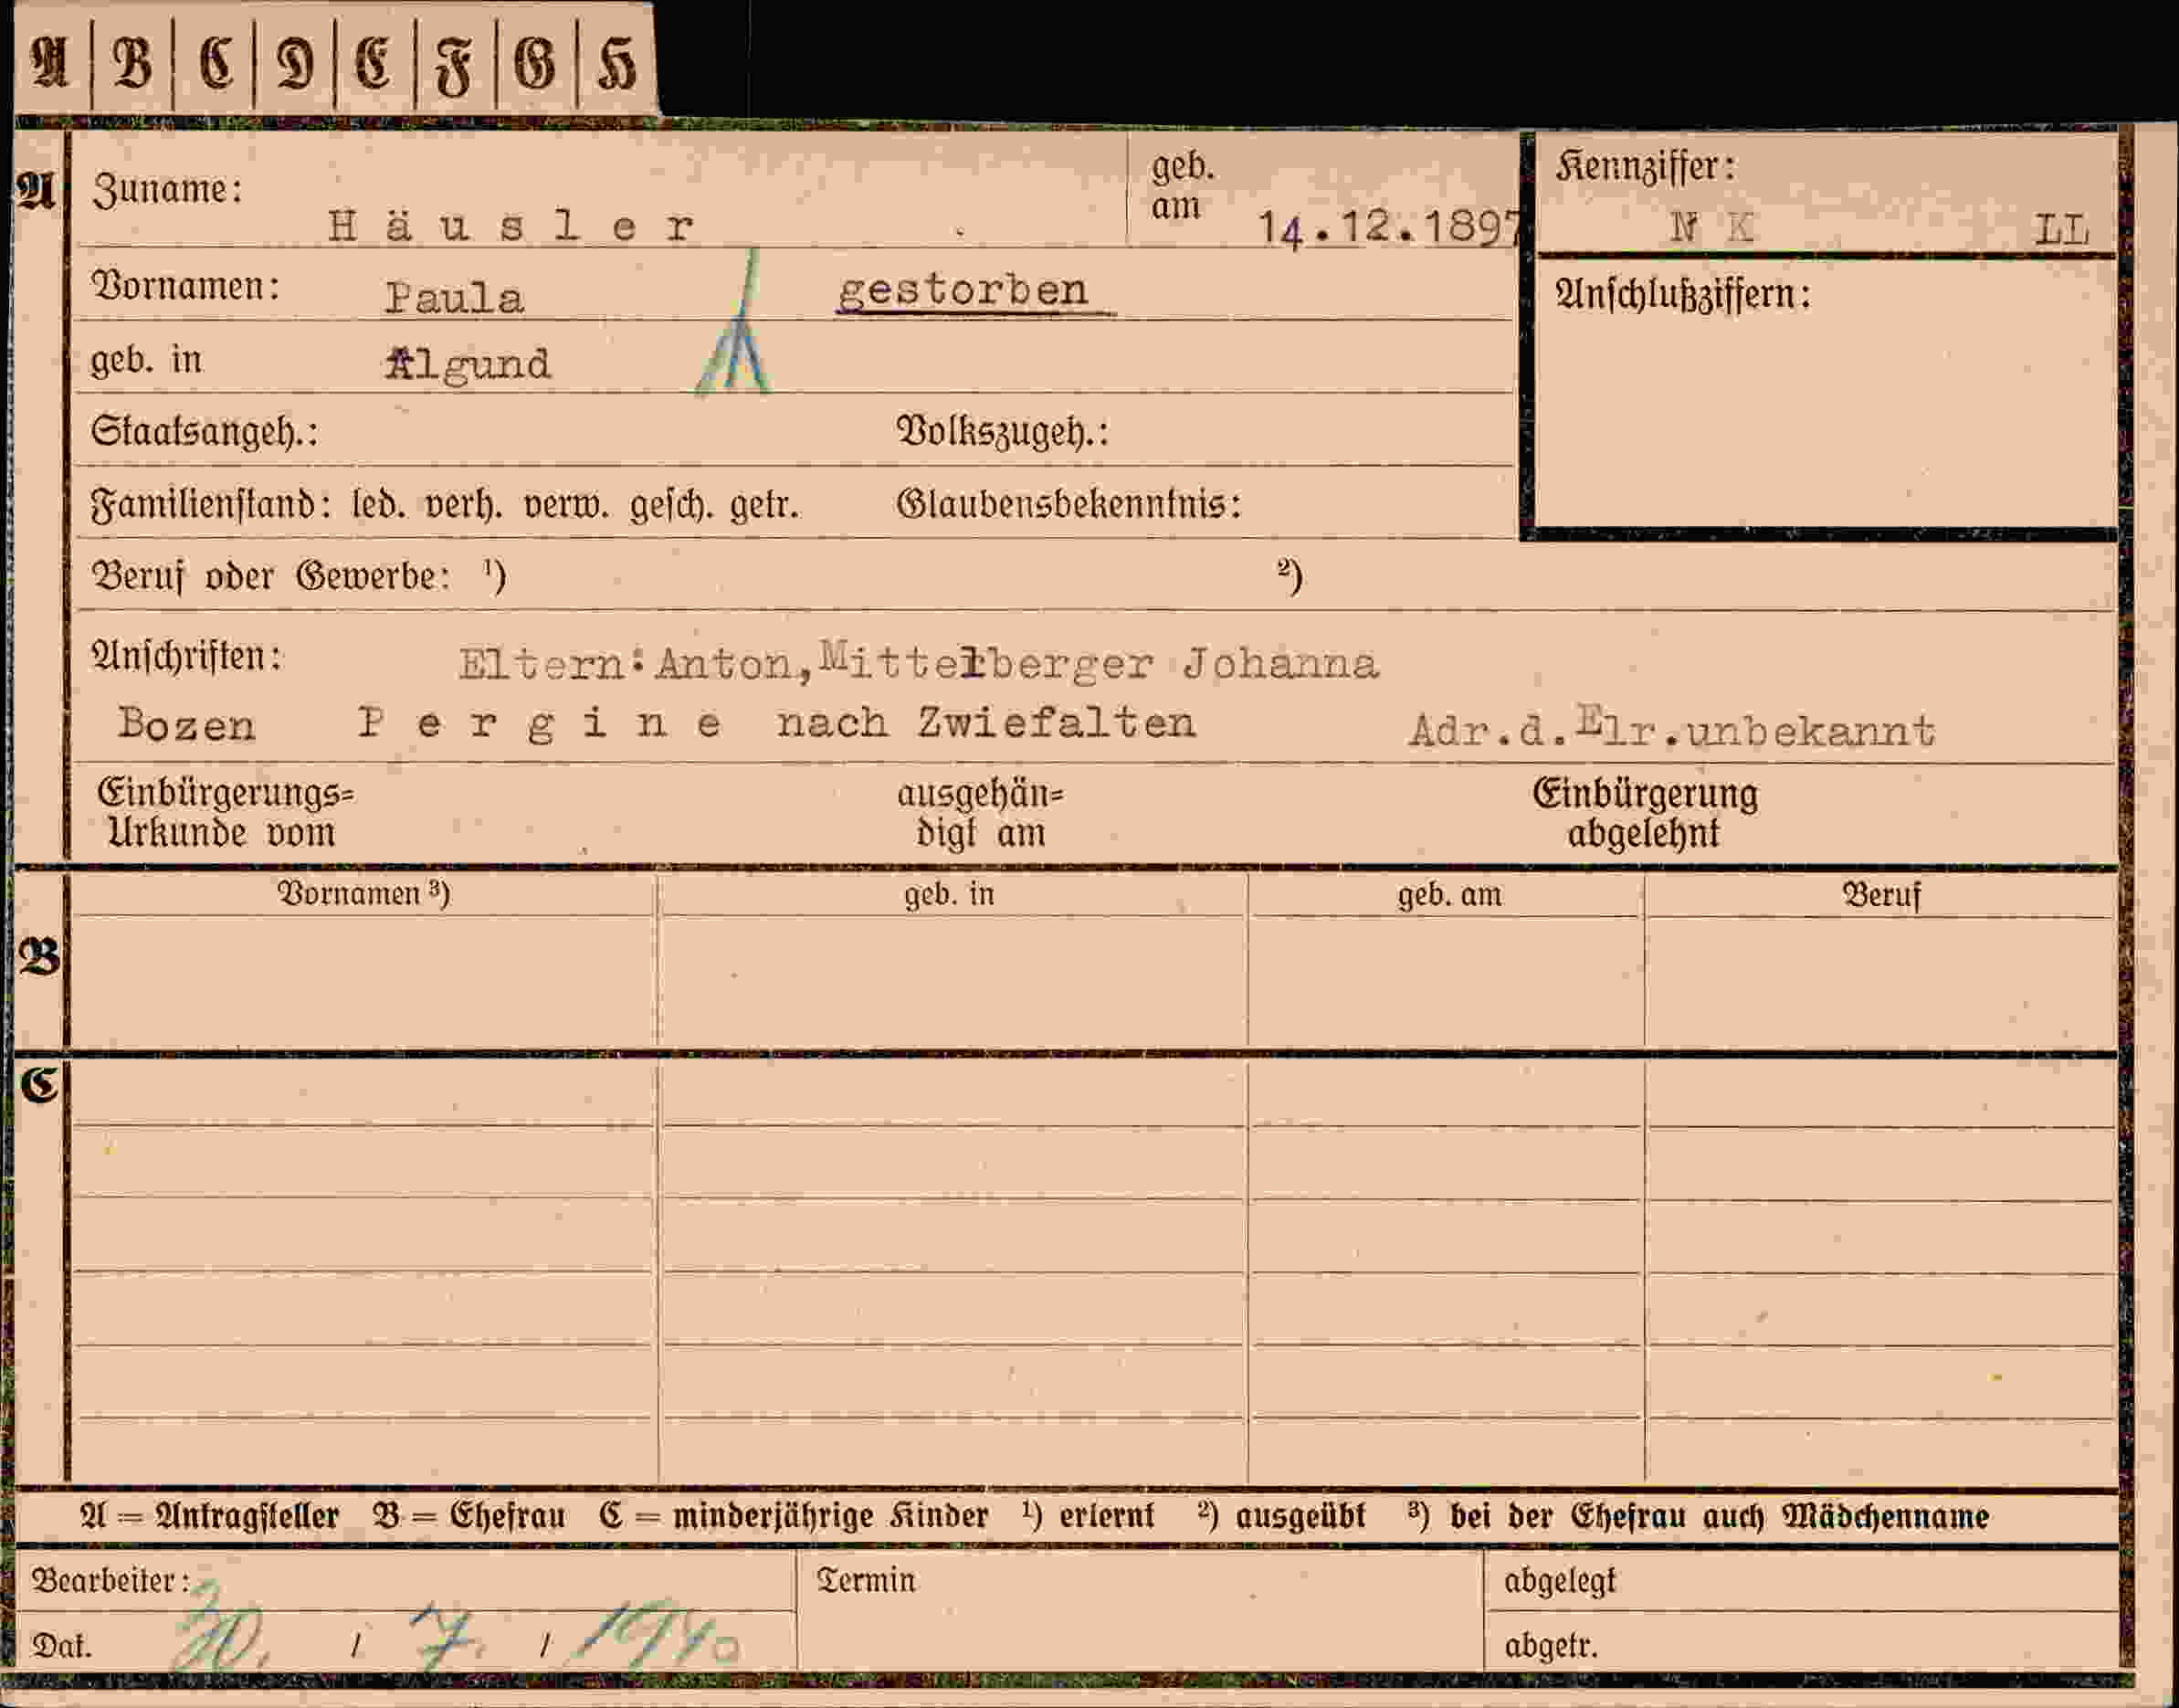 A B C D E F G H
A Zuname: Häusler geb. am 14.12.1897 Kennziffer: N K LL
Vornamen: Paula gestorben Anschlußziffern:
geb. in Algund
Staatsangeh.: Volkszugeh.:
Familienstand: led. verh. verw. gesch. getr. Glaubensbekenntnis:
Beruf oder Gewerbe: ¹) ²)
Anschriften: Eltern:Anton,Mittelberger Johanna
Bozen Pergine nach Zwiefalten Adr.d.Elr.unbekannt
Einbürgerungs= ausgehän= Einbürgerung
Urkunde vom digt am abgelehnt
Vornamen ³) geb. in geb. am Beruf
B
C
A = Antragsteller B = Ehefrau C = minderjährige Kinder ¹) erlernt ²) ausgeübt ³) bei der Ehefrau auch Mädchenname
Bearbeiter: Termin abgelegt
Dat. 30. / 7. / 1940 abgetr.